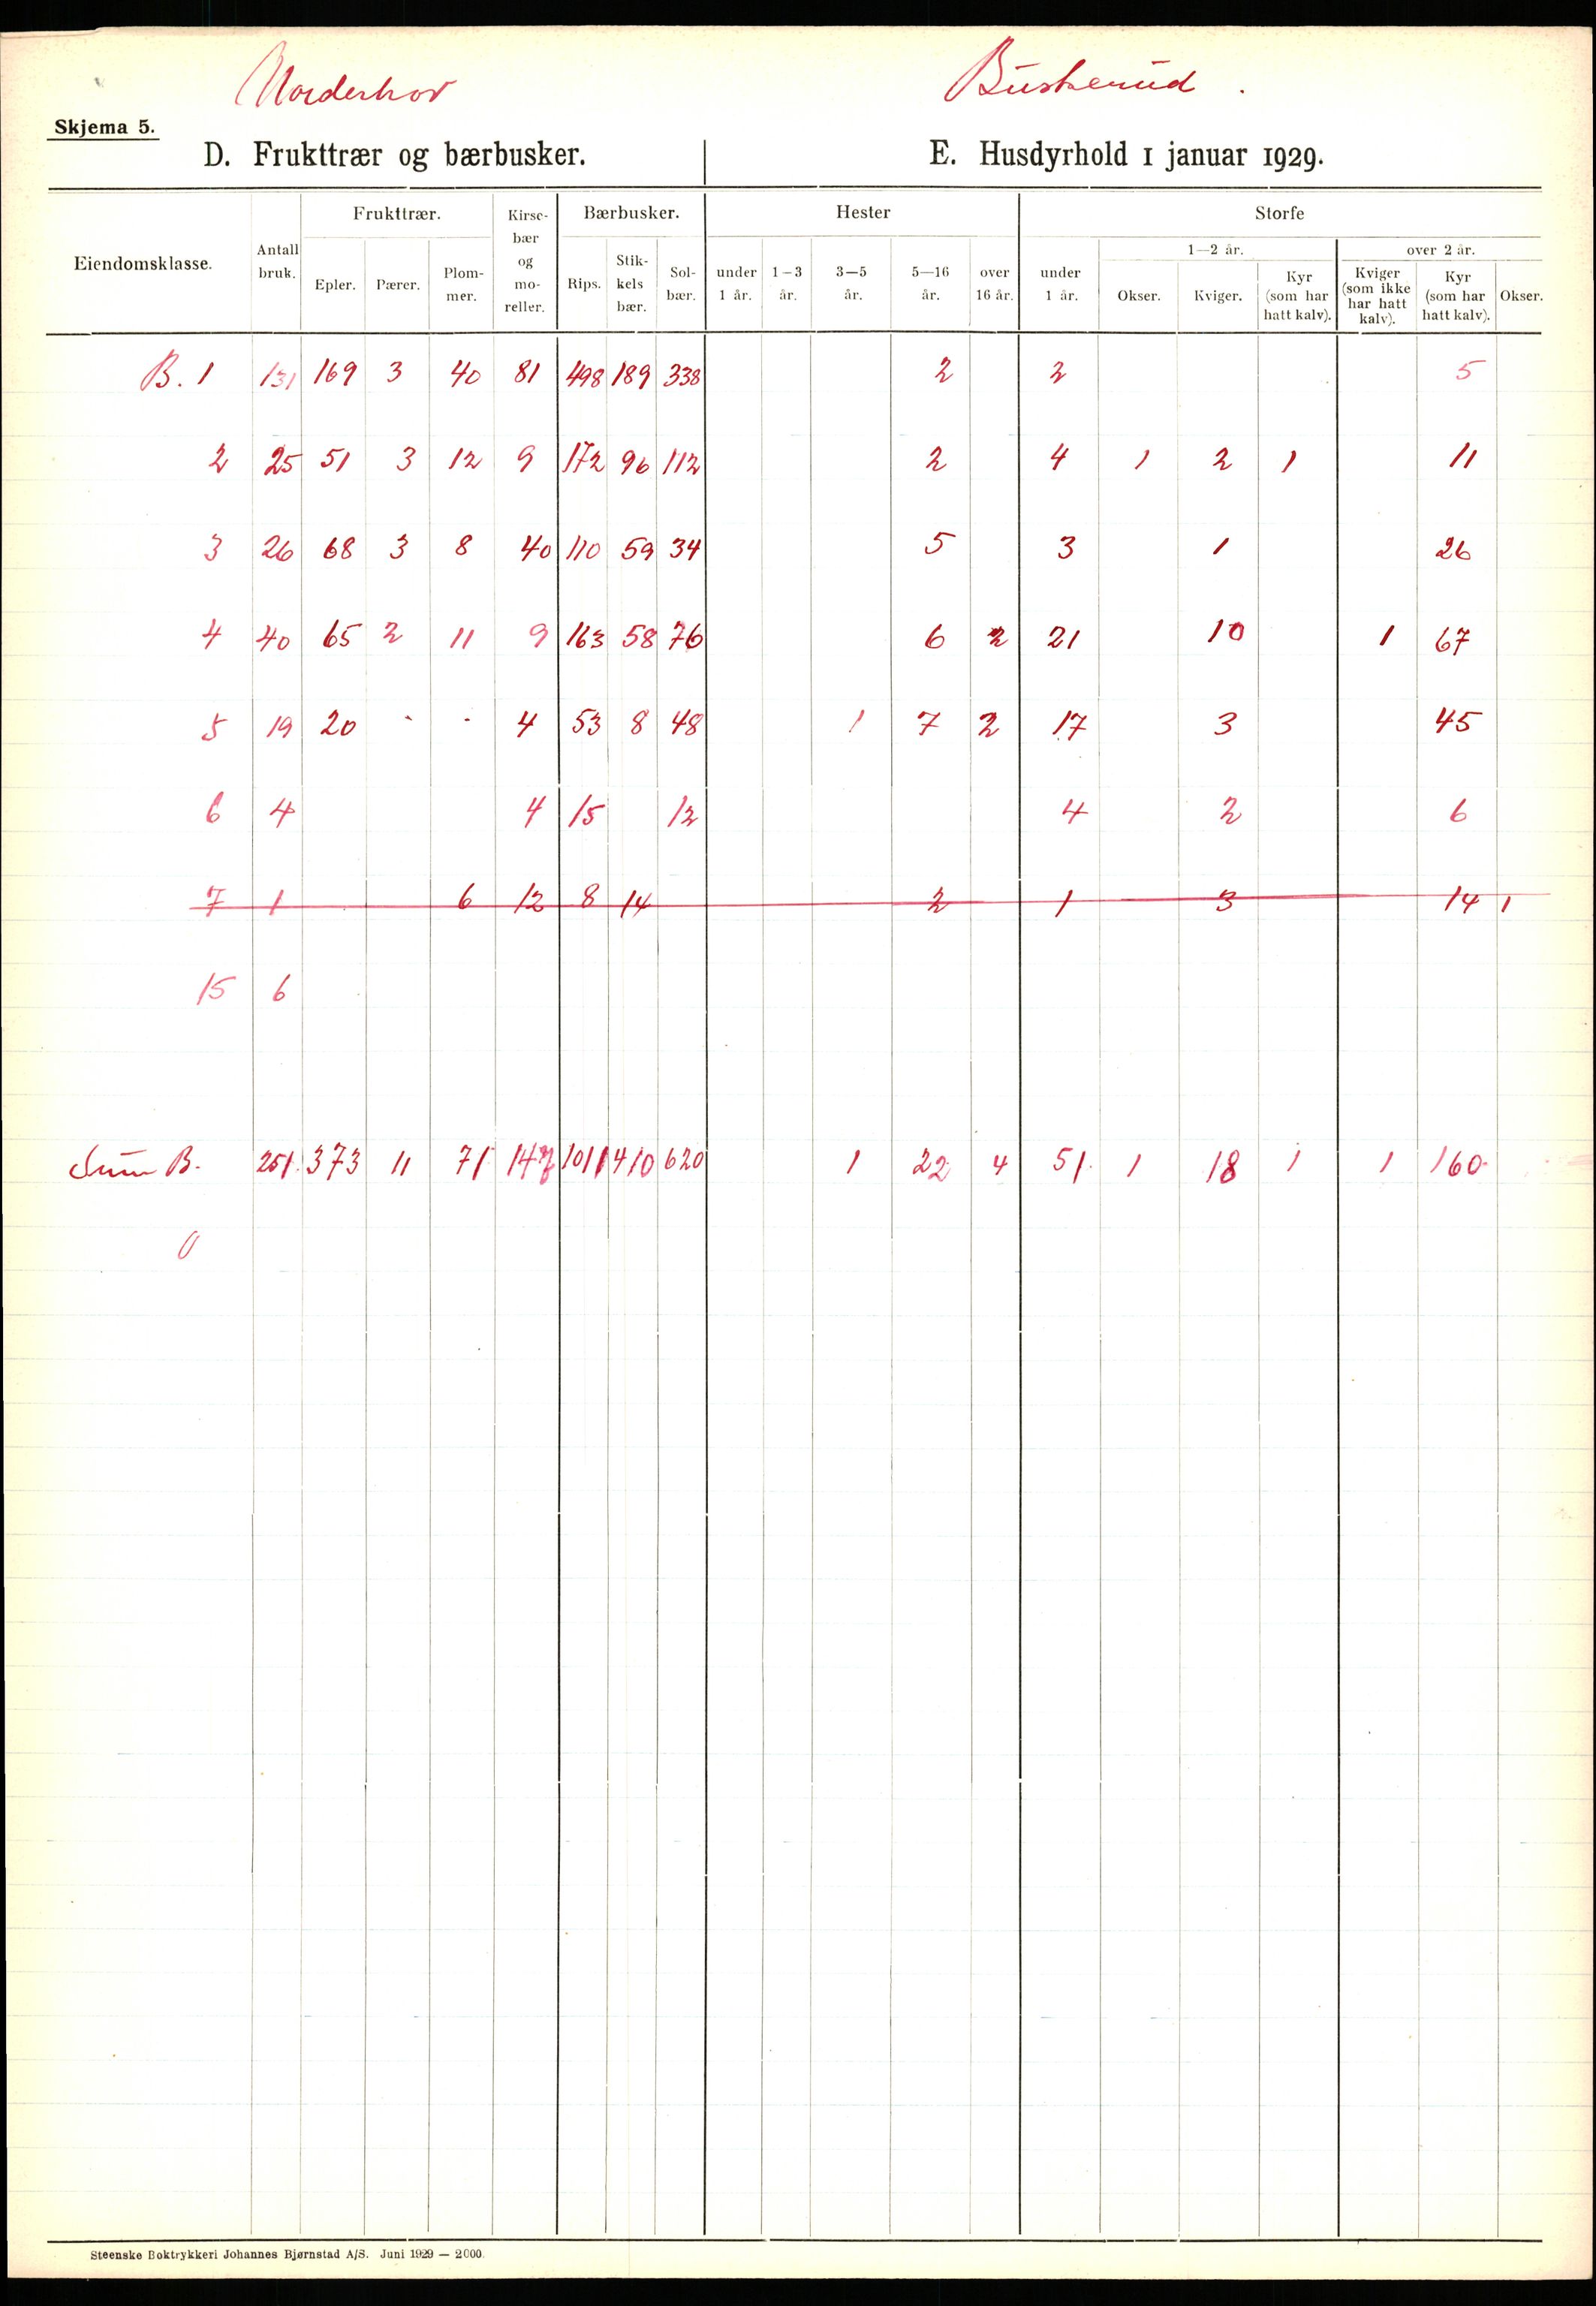 Norderhov Buskerud.
Skjema 5.
D. Frukttrær og bærbusker. E. Husdyrhold 1 januar 1929.
Eiendomsklasse. Antall bruk. Frukttrær. Epler. Pærer. Plom-mer. Kirse-bær og mo-reller. Bærbusker. Rips. Stik-kels bær. Sol-bær. Hester under 1 år. 1—3 år. 3—5 år. 5—16 år. over 16 år. Storfe under 1 år. 1—2 år. Okser. Kviger. Kyr (som har hatt kalv). over 2 år. Kviger (som ikke har hatt kalv). Kyr (som har hatt kalv). Okser.
B. 1 131 169 3 40 81 498 189 338 2 2 5
2 25 51 3 12 9 172 96 112 2 4 1 2 1 11
3 26 68 3 8 40 110 59 34 5 3 1 26
4 40 65 2 11 9 163 58 76 6 2 21 10 1 67
5 19 20 - - 4 53 8 48 1 7 2 17 3 45
6 4 4 15 12 4 2 6
7 1 6 12 8 14 2 1 3 14 1
15 6
Sum B. 251 373 11 71 147 1011 410 620 1 22 4 51 1 18 1 1 160
0
Steenske Boktrykkeri Johannes Bjørnstad A/S. Juni 1929 — 2000.